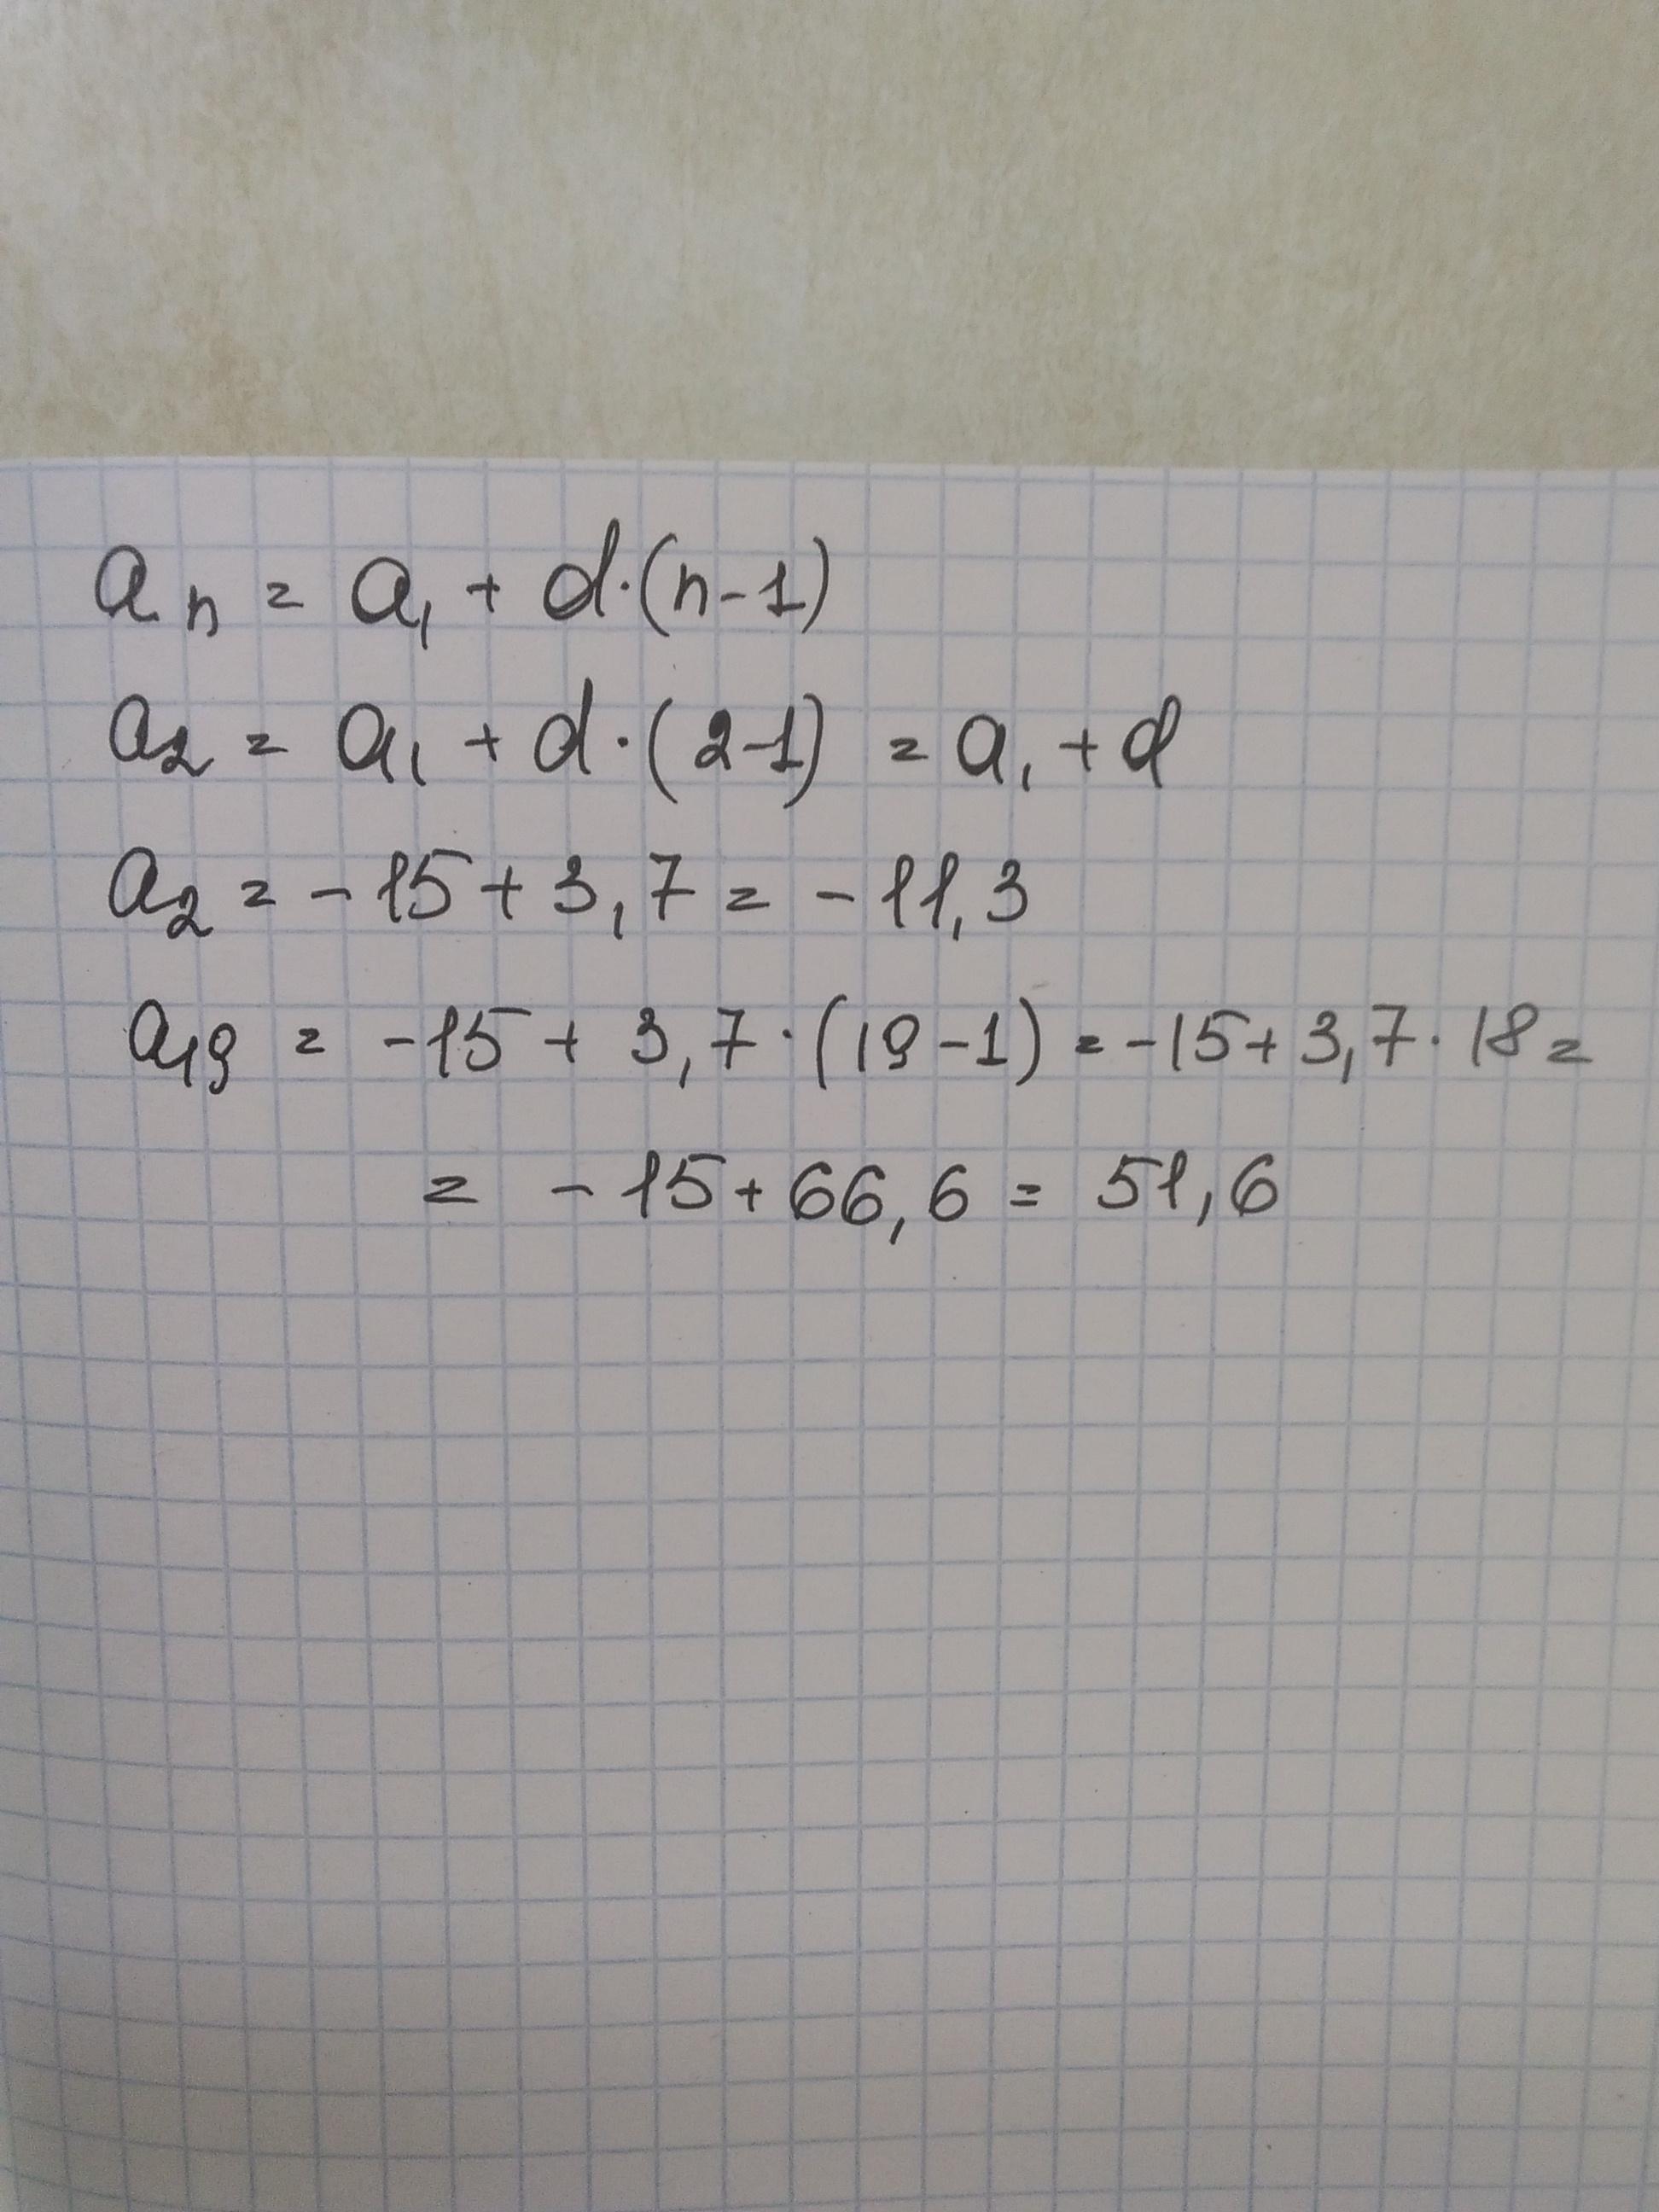 aₙ = a₁ + d·(n-1)
a₂ = a₁ + d·(2-1) = a₁ + d
a₂ = -15 + 3,7 = -11,3
a₁₉ = -15 + 3,7·(19-1) = -15 + 3,7·18 =
= -15 + 66,6 = 51,6